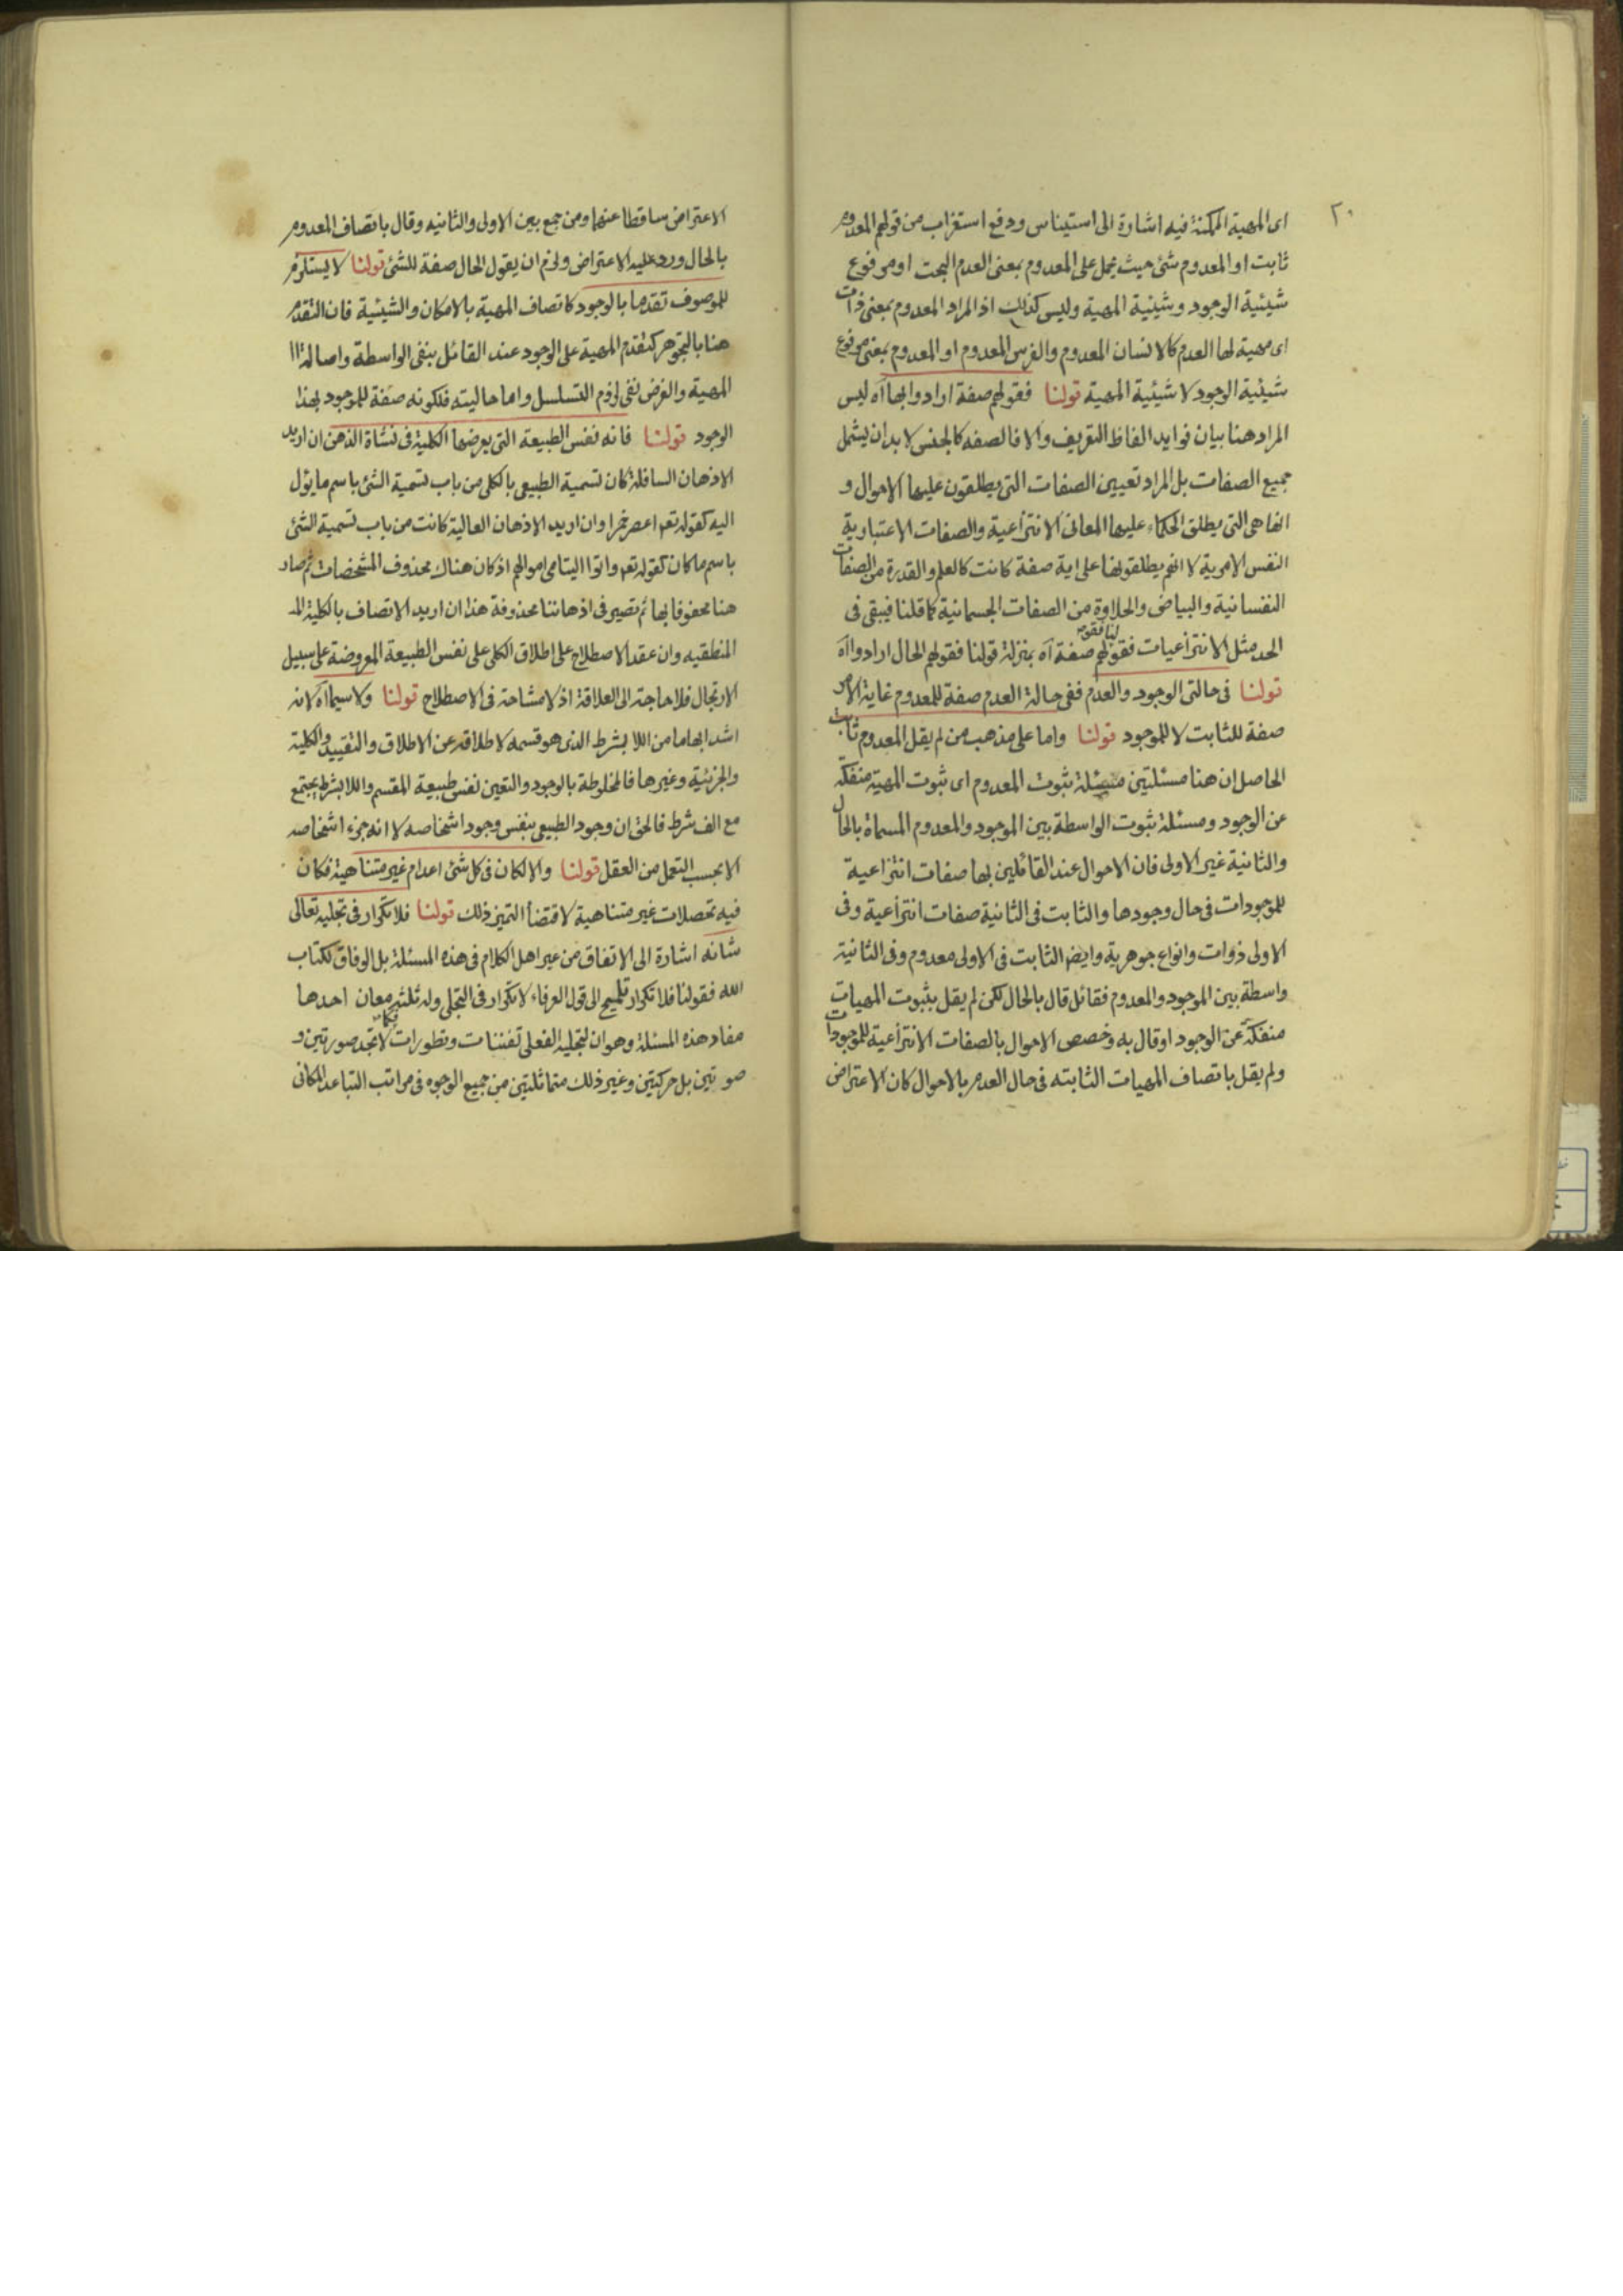 ٢٠
اى المهية الممكنة فيه اشارة الى استيناس ودفع استغراب من قولهم المعدوم
ثابت او المعدوم شئ حيث يحمل على المعدوم بمعنى العدم البحت او مرفوع
شيئية الوجود وشيئية المهية وليس كذلك اذ المراد المعدوم بمعنى ذات
اى مهية لها العدم كالانسان المعدوم والفرس المعدوم او المعدوم بمعنى مرفوع
شيئية الوجود لا شيئية المهية قولنا فقولهم صفة ارادوا بها آه ليس
المراد هنا بيان فوايد الفاظ التعريف والا فالصفه كالجنس لا بد ان يشمل
جميع الصفات بل المراد تعيين الصفات التى يطلقون عليها الاحوال و
انها هى التى يطلق الحكماء عليها المعانى الانتزاعية والصفات الاعتبارية
النفس الامرية لا انهم يطلقونها على اية صفة كانت كالعلم والقدرة من الصفات
النفسانية والبياض والحلاوة من الصفات الجسمانية كما قلنا فيبقى فى
الحد مثل الانتزاعيات فقولهم صفة آه بمنزلة قولنا فقولهم الحال ارادوا آه
قولنا فى حالتى الوجود والعدم ففى حالة العدم صفة للمعدوم غاية الامر
صفة للثابت لا للموجود قولنا واما على مذهب من لم يقل المعدوم ثابت
الحاصل ان هنا مسئلتين مسئلة ثبوت المعدوم اى ثبوت المهية منفكة
عن الوجود ومسئلة ثبوت الواسطة بين الموجود والمعدوم المسماة بالحال
والثانية غير الاولى فان الاحوال عند القائلين بها صفات انتزاعية
للموجودات فى حال وجودها والثابت فى الثانية صفات انتزاعية وفى
الاولى ذوات وانواع جوهرية وايض الثابت فى الاولى معدوم وفى الثانية
واسطة بين الموجود والمعدوم فقائل قال بالحال لكن لم يقل بثبوت المهيات
منفكة عن الوجود او قال به وخصص الاحوال بالصفات الانتزاعية للموجودات
ولم يقل باتصاف المهيات الثابته فى حال العدم بالاحوال كان الاعتراض
الاعتراض ساقطا عنهما ومن جمع بين الاولى والثانيه وقال باتصاف المعدوم
بالحال ورد عليه الاعتراض ولزم ان يقول الحال صفة للشئ قولنا لا يستلزم
للموصوف تقدما بالوجود كاتصاف المهية بالامكان والشيئية فان التقدم
هنا بالتجوهر كتقدم المهية على الوجود عند القائل بنفى الواسطة واصالة
المهية والغرض نفى لزوم التسلسل واما حاليته فلكونه صفة للموجود بهذا
الوجود قولنا فانه نفس الطبيعة التى يعرضها الكلية فى نشاة الذهن ان اريد
الاذهان السافلة كان تسمية الطبيعى بالكلى من باب تسمية الشئ باسم ما يؤل
اليه كقوله تعه اعصر خمرا وان اريد الاذهان العالية كانت من باب تسمية الشئ
باسم ما كان كقوله تعه واتوا اليتامى اموالهم اذ كان هناك محذوف المشخصات ثم صار
هنا محفوفا بها ثم تصير فى اذهاننا محذوفة هذا ان اريد الاتصاف بالكلية
المنطقيه وان عقد الاصطلاح على اطلاق الكلى على نفس الطبيعة المعروضة على سبيل
الارتجال فلا حاجة الى العلاقة اذ لا مشاحة فى الاصطلاح قولنا ولا سيما آه لانه
اشد ابهاما من اللا بشرط الذى هو قسمه لاطلاقه عن الاطلاق والتقييد والكلية
والجزئية وغيرها فالمخلوطة بالوجود والتعين نفس طبيعة المقسم واللا بشرط يجتمع
مع الف شرط فالحق ان وجود الطبيعى بنفس وجود اشخاصه لا انه جزء اشخاصه
الا بحسب التعمل من العقل قولنا والا لكان فى كل شئ اعدام غير متناهية فكان
فيه تحصلات غير متناهية لاقتضا التميز ذلك قولنا فلا تكرار فى تجليه تعالى
شانه اشارة الى الاتفاق من غير اهل الكلام فى هذه المسئلة بل الوفاق لكتاب
الله فقولنا فلا تكرار تلميح الى قول العرفاء لا تكرار فى التجلى وله ثلثه معان احدها
مفاد هذه المسئلة وهو ان لتجليه الفعلى تفننات وتطورات لا تجد صورتين و
صوتين بل حركتين وغير ذلك متماثلتين من جميع الوجوه فى مراتب التباعد المكانى